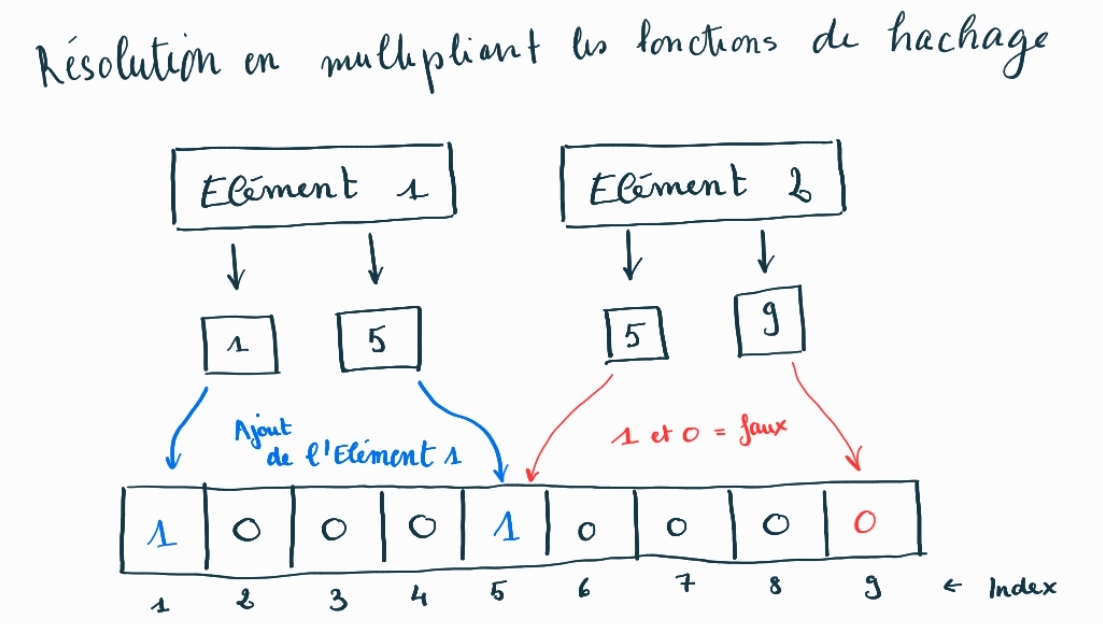 Résolution en multipliant les fonctions de hachage
Elément 1 Elément 2
1 5 5 9
Ajout
de l'Elément 1
1 et 0 = faux
1 0 0 0 1 0 0 0 0
1 2 3 4 5 6 7 8 9 ← Index